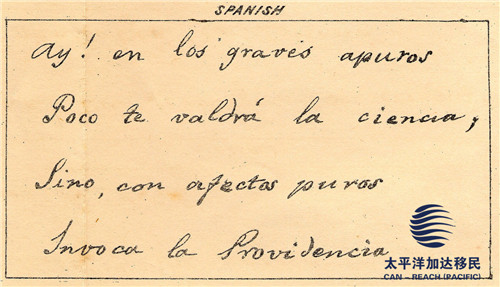 SPANISH
Ay! en los graves apuros
Poco te valdrá la ciencia,
Sino, con afectos puros
Invoca la Providencia
太平洋加达移民
CAN - REACH (PACIFIC)